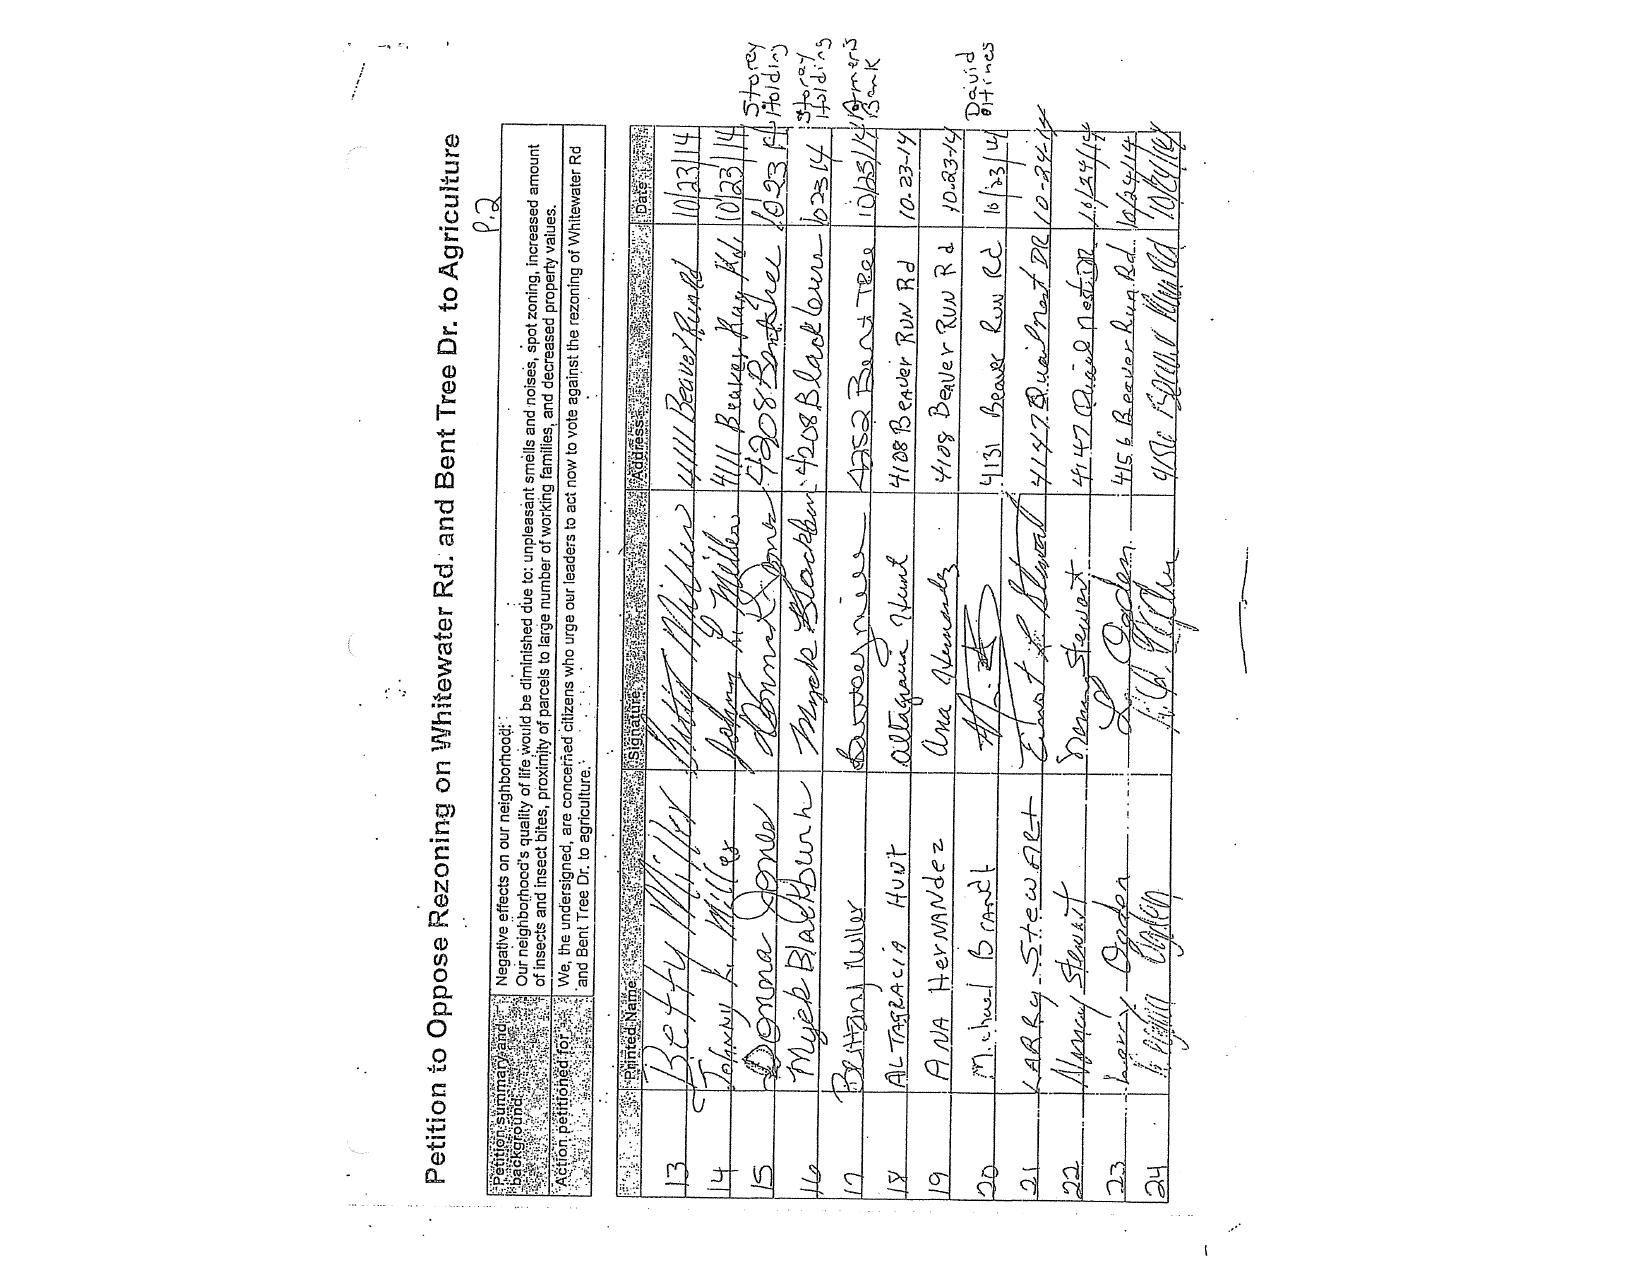 Petition to Oppose Rezoning on Whitewater Rd. and Bent Tree Dr. to Agriculture
P.2
Petition summary and background: Negative effects on our neighborhood:
Our neighborhood's quality of life would be diminished due to: unpleasant smells and noises, spot zoning, increased amount
of insects and insect bites, proximity of parcels to large number of working families, and decreased property values.
Action petitioned for We, the undersigned, are concerned citizens who urge our leaders to act now to vote against the rezoning of Whitewater Rd
and Bent Tree Dr. to agriculture.
Printed Name Signature Address Date
13 Betty Miller Betty Miller 4111 Beaver Run Rd 10/23/14
14 Johnny K. Miller Johnny Miller 4111 Beaver Run Rd. 10/23/14
15 Donna Jones Donna Jones 4208 Bent Tree 102314 Storey Holding
16 Myek Blackburn Myek Blackburn 4208 Blackburn 102314 Storey Holding
17 Brittany Miller 4252 Bent Tree 10/23/14 Ameris Bank
18 ALTAGRACIA HUNT Altagracia Hunt 4108 Beaver RUN Rd 10-23-14
19 ANA HerNANdez Ana Hernandez 4108 Beaver RUN Rd 10-23-14
20 Michael Brandt 4131 Beaver Run Rd 10/23/14 David
21 LARRY Stewart Stewart 4147 Quail Nest DR 10-24-14
22 Nancy Stewart Stewart 4147 Quail Nest DR 10/24/14
23 Larry Ogden L Ogden 4156 Beaver Run Rd. 10/24/14
24 Ogden 4156 10/24/14